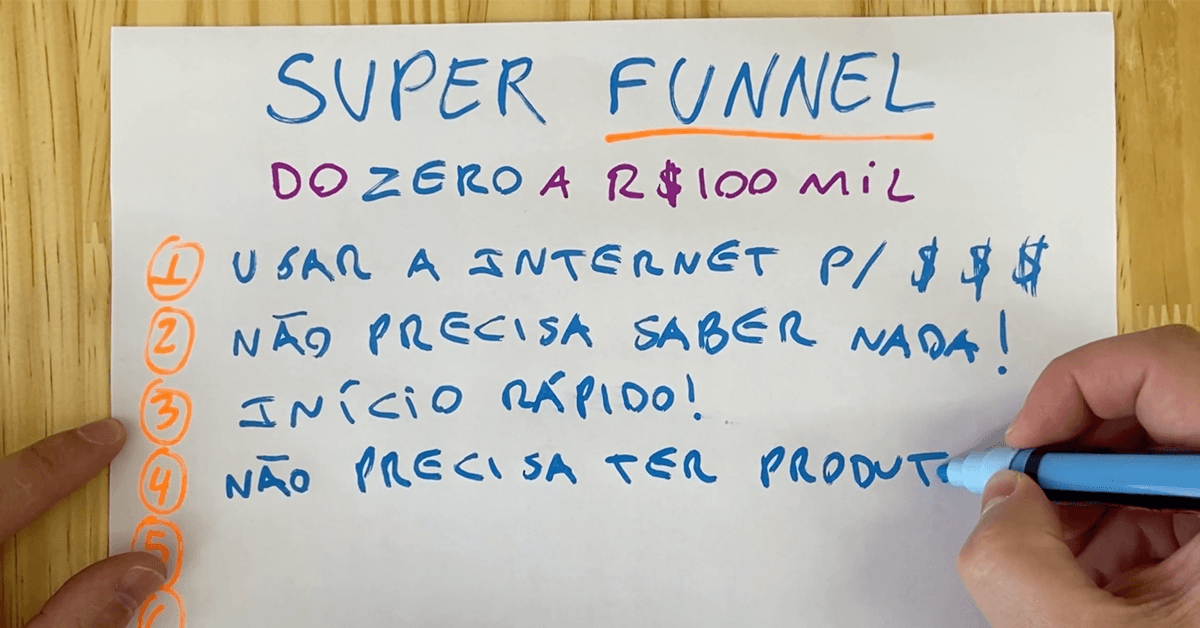 SUPER FUNNEL
DO ZERO A R$100 MIL
1 USAR A INTERNET P/ $ $ $
2 NÃO PRECISA SABER NADA!
3 INÍCIO RÁPIDO!
4 NÃO PRECISA TER PRODUT
5